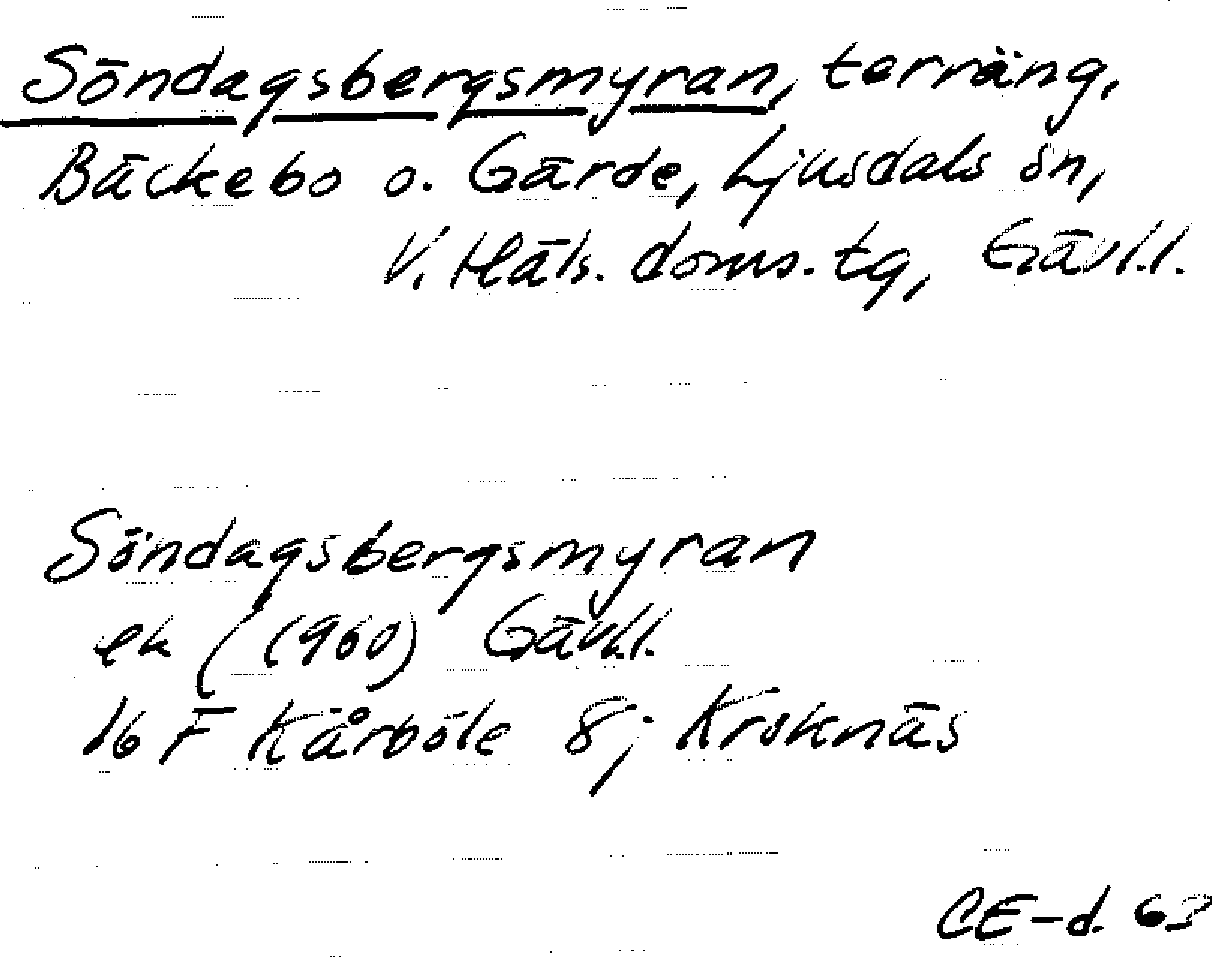 Söndagsbergsmyran, terräng,
Bäckebo o. Gärde, Ljusdals sn,
V. Häls. doms. tg, Gävl.l.
Söndagsbergsmyran
ek (1960) Gävl.l.
16 F Kårböle 8j Kroknäs
CE-d. 63